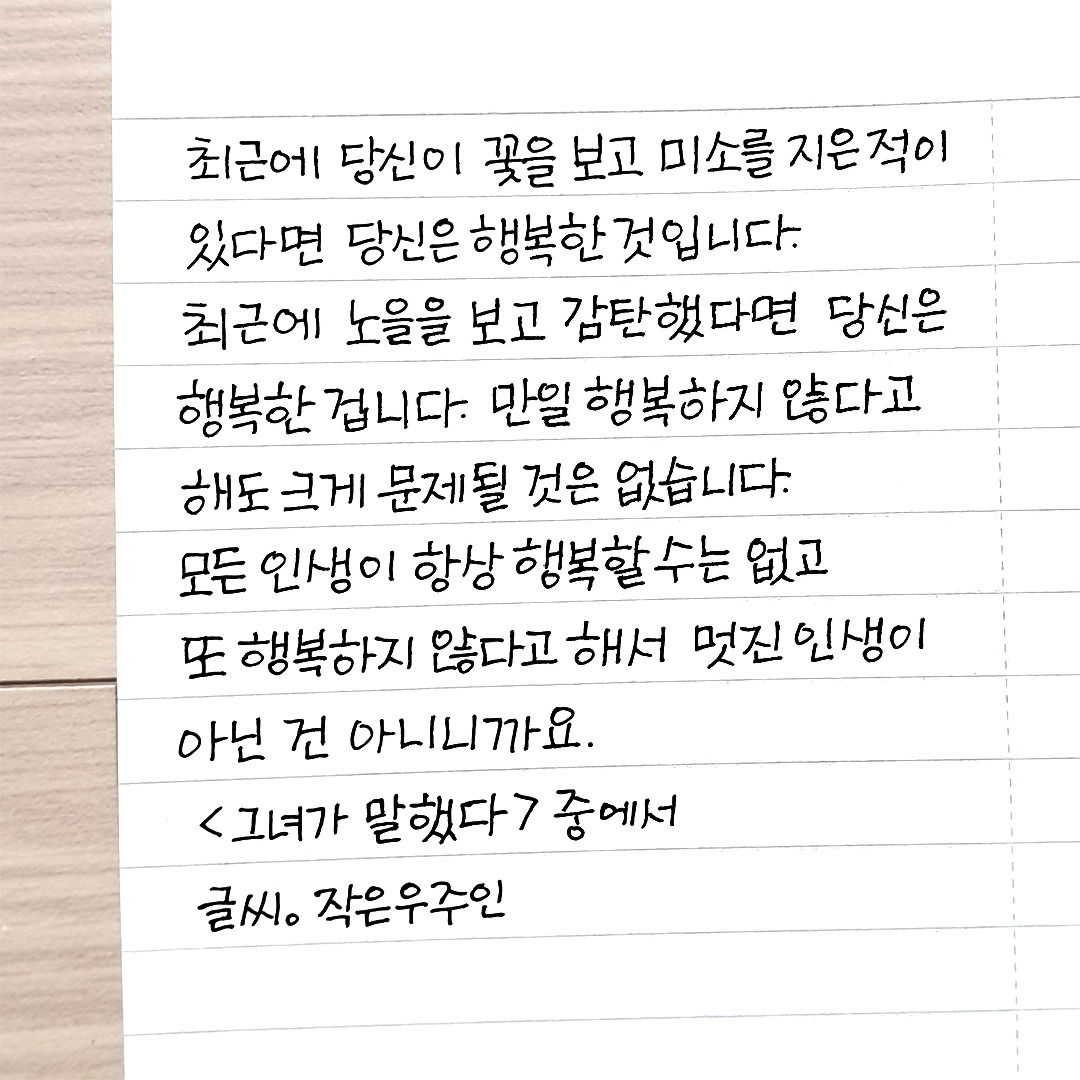 최근에 당신이 꽃을 보고 미소를 지은적이
있다면 당신은 행복한 것입니다.
최근에 노을을 보고 감탄했다면 당신은
행복한 겁니다. 만일 행복하지 않다고
해도 크게 문제될 것은 없습니다.
모든 인생이 항상 행복할 수는 없고
또 행복하지 않다고 해서 멋진 인생이
아닌 건 아니니까요.
<그녀가 말했다> 중에서
글씨。작은우주인